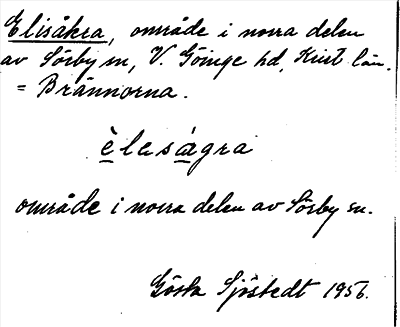 Elisåkra, område i norra delen
av Sörby sn, V. Göinge hd, Krist. län.
= Brännorna.
èleságra
område i norra delen av Sörby sn.
Gösta Sjöstedt 1956.